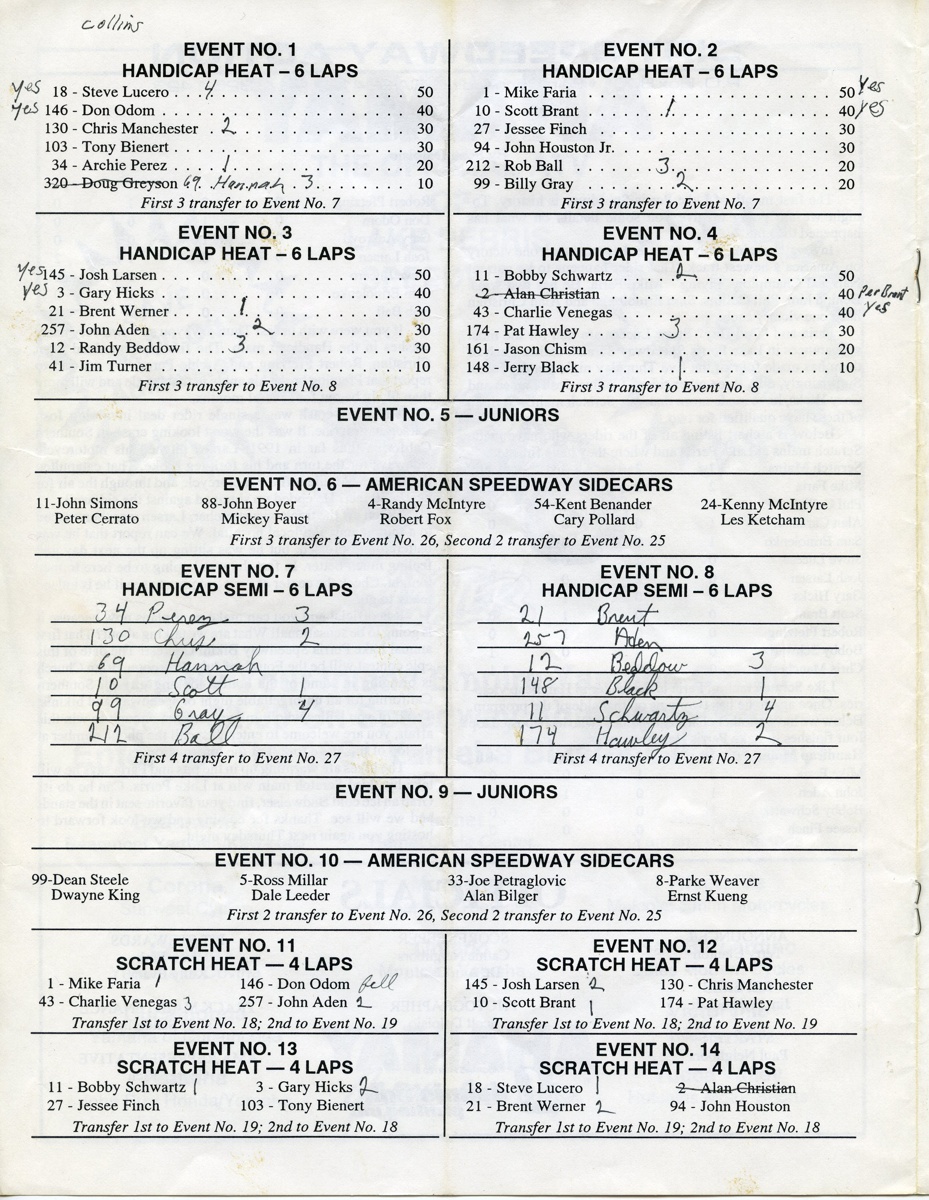 Collins
EVENT NO. 1
HANDICAP HEAT – 6 LAPS
yes 18 - Steve Lucero . . 4 . . . . . . . . . . . . . . 50
yes 146 - Don Odom . . . . . . . . . . . . . . . . . . 40
130 - Chris Manchester . . 2 . . . . . . . . . . . . . 30
103 - Tony Bienert . . . . . . . . . . . . . . . . . . 30
34 - Archie Perez . . . . 1 . . . . . . . . . . . . . 20
320 - Doug Greyson 69. Hannah 3 . . . . . . . . . . 10
First 3 transfer to Event No. 7
EVENT NO. 2
HANDICAP HEAT – 6 LAPS
1 - Mike Faria . . . . . . . . . . . . . . . . . . 50 yes
10 - Scott Brant . . . . . . 1 . . . . . . . . . . . 40 yes
27 - Jessee Finch . . . . . . . . . . . . . . . . . . 30
94 - John Houston Jr. . . . . . . . . . . . . . . . . 30
212 - Rob Ball . . . . . . 3 . . . . . . . . . . . . 20
99 - Billy Gray . . . . . . . 2 . . . . . . . . . . . 20
First 3 transfer to Event No. 7
EVENT NO. 3
HANDICAP HEAT – 6 LAPS
yes 145 - Josh Larsen . . . . . . . . . . . . . . . . . 50
yes 3 - Gary Hicks . . . . . . . . . . . . . . . . . . 40
21 - Brent Werner . . . . 1 . . . . . . . . . . . . . 30
257 - John Aden . . . . . . 2 . . . . . . . . . . . . 30
12 - Randy Beddow . . . 3 . . . . . . . . . . . . . . 30
41 - Jim Turner . . . . . . . . . . . . . . . . . . . 10
First 3 transfer to Event No. 8
EVENT NO. 4
HANDICAP HEAT – 6 LAPS
11 - Bobby Schwartz . . . . 2 . . . . . . . . . . . . 50
2 - Alan Christian . . . . . . . . . . . . . . . . . 40 Per Brent
43 - Charlie Venegas . . . . . . . . . . . . . . . . . 40 Yes
174 - Pat Hawley . . . . . . 3 . . . . . . . . . . . . 30
161 - Jason Chism . . . . . . . . . . . . . . . . . . 20
148 - Jerry Black . . . . . . 1 . . . . . . . . . . . 10
First 3 transfer to Event No. 8
EVENT NO. 5 — JUNIORS
EVENT NO. 6 — AMERICAN SPEEDWAY SIDECARS
11-John Simons 88-John Boyer 4-Randy McIntyre 54-Kent Benander 24-Kenny McIntyre
Peter Cerrato Mickey Faust Robert Fox Cary Pollard Les Ketcham
First 3 transfer to Event No. 26, Second 2 transfer to Event No. 25
EVENT NO. 7
HANDICAP SEMI – 6 LAPS
34 Perez 3
130 Chris 2
69 Hannah
10 Scott 1
99 Gray 4
212 Ball
First 4 transfer to Event No. 27
EVENT NO. 8
HANDICAP SEMI – 6 LAPS
21 Brent
257 Aden
12 Beddow 3
148 Black 1
11 Schwartz 4
174 Hawley 2
First 4 transfer to Event No. 27
EVENT NO. 9 — JUNIORS
EVENT NO. 10 — AMERICAN SPEEDWAY SIDECARS
99-Dean Steele 5-Ross Millar 33-Joe Petraglovic 8-Parke Weaver
Dwayne King Dale Leeder Alan Bilger Ernst Kueng
First 2 transfer to Event No. 26, Second 2 transfer to Event No. 25
EVENT NO. 11
SCRATCH HEAT — 4 LAPS
1 - Mike Faria 1 146 - Don Odom fell
43 - Charlie Venegas 3 257 - John Aden 2
Transfer 1st to Event No. 18; 2nd to Event No. 19
EVENT NO. 12
SCRATCH HEAT — 4 LAPS
145 - Josh Larsen 2 130 - Chris Manchester
10 - Scott Brant 1 174 - Pat Hawley
Transfer 1st to Event No. 18; 2nd to Event No. 19
EVENT NO. 13
SCRATCH HEAT — 4 LAPS
11 - Bobby Schwartz 1 3 - Gary Hicks 2
27 - Jessee Finch 103 - Tony Bienert
Transfer 1st to Event No. 19; 2nd to Event No. 18
EVENT NO. 14
SCRATCH HEAT — 4 LAPS
18 - Steve Lucero 1 2 - Alan Christian
21 - Brent Werner 2 94 - John Houston
Transfer 1st to Event No. 19; 2nd to Event No. 18